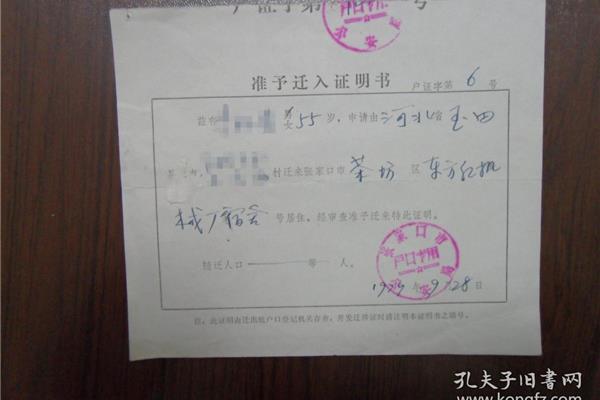 户证字第 号
公安局
准予迁入证明书 户证字第 6 号
兹有 男女 55 岁，申请由 河北 省 玉田
县 村迁来张家口市 茶坊 区 东方红机
械厂宿舍 号居住，经审查准予迁来特此证明。
随迁人口 —— 等 — 人。
张家口市公安局
户口专用
年 9 28 日
注：此证明由迁出地户口登记机关存查，并发迁移证时请注明本证明书之编号。
孔夫子旧书网
www.kongfz.com